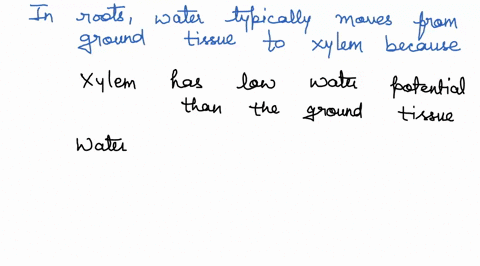 In roots, water typically moves from
ground tissue to xylem because
Xylem has low water potential
than the ground tissue
Water